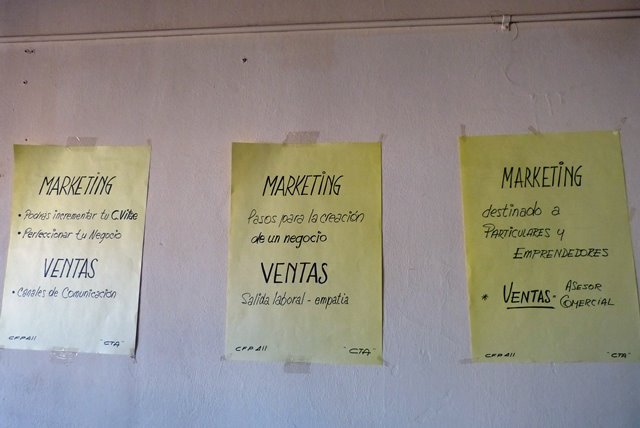 MARKETING
• Podras incrementar tu C.Vitae
• Perfeccionar tu Negocio
VENTAS
• Canales de Comunicacion
CFP A11
"CTA"
MARKETING
Pasos para la creación
de un negocio
VENTAS
Salida laboral - empatia
CFP A11
"CTA"
MARKETING
destinado a
PARTICULARES y
EMPRENDEDORES
* VENTAS - ASESOR
COMERCIAL
CFP A11
"CTA"